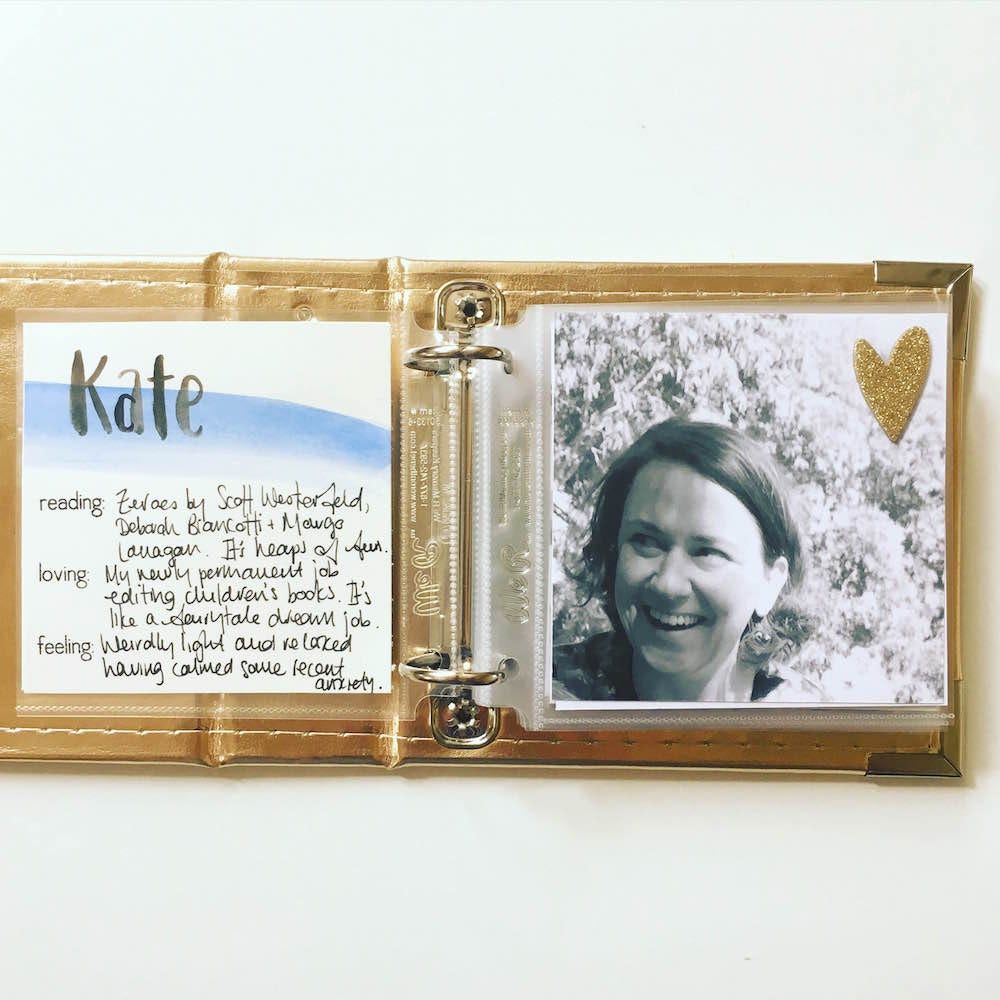 Kate
reading: Zeroes by Scott Westerfeld,
Deborah Biancotti + Margo
Lanagan. It's heaps of fun.
loving: My newly permanent job
editing children's books. It's
like a fairytale dream job.
feeling: Weirdly light and relaxed
having calmed some recent
anxiety.
We R
We R